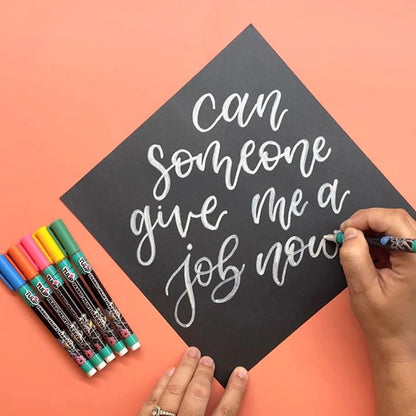 can
someone
give me a
job now